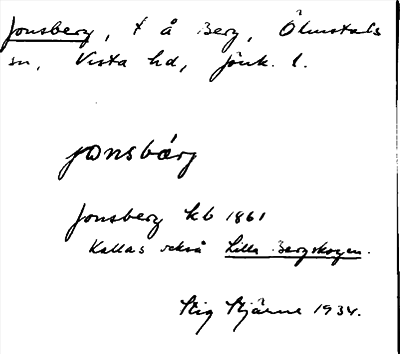 Jonsberg, t å Berg, Ölmstads
sn, Vista hd, Jönk. l.
jonsbárg
Jonsberg kb 1861
Kallas också Lilla Bergskogen.
Stig Stjärne 1934.